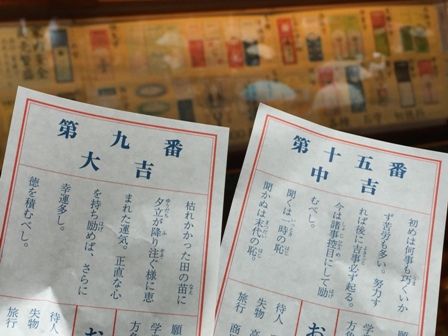 第九番
大吉
枯れかかった田の苗に
夕立が降り注ぐ様に恵
まれた運気。正直な心
を持ち励めば、さらに
幸運多し。
徳を積むべし。
待人
失物
旅行
お
願
学
方
第十五番
中吉
初めは何事も巧くいか
ず苦労も多い。努力す
れば後に吉事必ず起る。
今は諸事控目にして励
むべし。
聞くは一時の恥
聞かぬは末代の恥。
待人
失物
旅行
商
お
願
学
方角